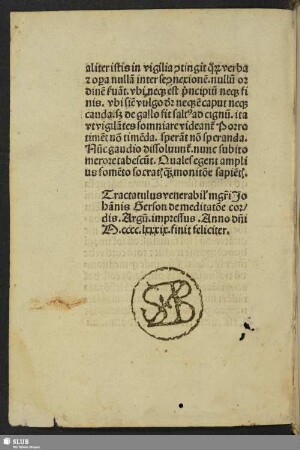 aliter istis in vigilia ꝯtingit q̃ꝝ verba
⁊ oꝑa nullã inter se ꝯnexionẽ. nullũ or
dinẽ ẜuãt. vbi neqꝫ est ṗncipiũ neqꝫ fi
nis. vbi siẽ vulgo dr̃ neqꝫ caput neqꝫ
cauda. sꝫ de gallo fit saltꝰ ad cignũ. ita
vt vigilãtes somniare videant̃ Porro
timẽt nõ timẽda. sperãt nõ speranda.
Nũc gaudio dissoluunt̃. nunc subito
merore tabescũt. Quales egent ampli
us fomẽto socratꝭ qꝫ monitõe sapiẽtꝭ.
Tractatulus venerabilꝭ mgr̃i Jo
hãnis Gerson de meditatõe cor/
dis. Argñ. impressus. Anno dñi
M. cccc. lxxxix. finit feliciter.
SLUB
Wir führen Wissen.